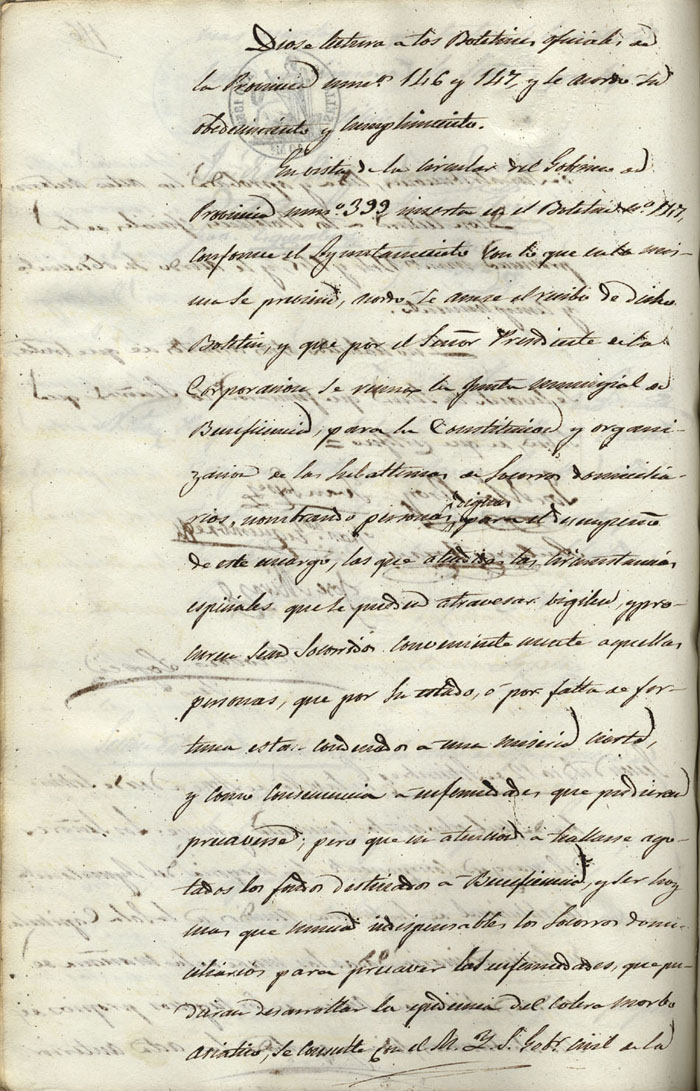 Diose lectura a los Boletines oficiales de
la Provincia num.s 146 y 147, y se acordo su
obedecimiento y cumplimiento.
En vista de la circular del Gobierno de
Provincia num.o 399 inserta en el Boletin n.o 147,
conforme el Ayuntamiento con lo que en la mis-
ma se previene, acordo se avise el recibo de dicho
Boletin, y que por el Señor Presidente de la
Corporacion se reuna la Junta municipal de
Beneficencia, para la Constitucion y organi-
zacion de las Subalternas de Socorros domicilia-
rios, nombrando personas dignas para el desempeño
de este encargo, las que atendidas las circunstancias
especiales que se puedan atravesar vigilen, y pro-
curen sean Socorridos convenientemente aquellas
personas, que por su estado, o por falta de for-
tuna estan condenados a una miseria cierta,
y como consecuencia a enfermedades que pudieran
precaverse; pero que en atencion a hallarse ago-
tados los fondos destinados a Beneficencia, y ser hoy
mas que nunca indispensables los Socorros domi-
ciliarios para precaver las enfermedades, que pu-
dieran desarrollar la epidemia del Colera Morbo
asiatico, se consulte con el M. Y. S. Gob.r Civil de la